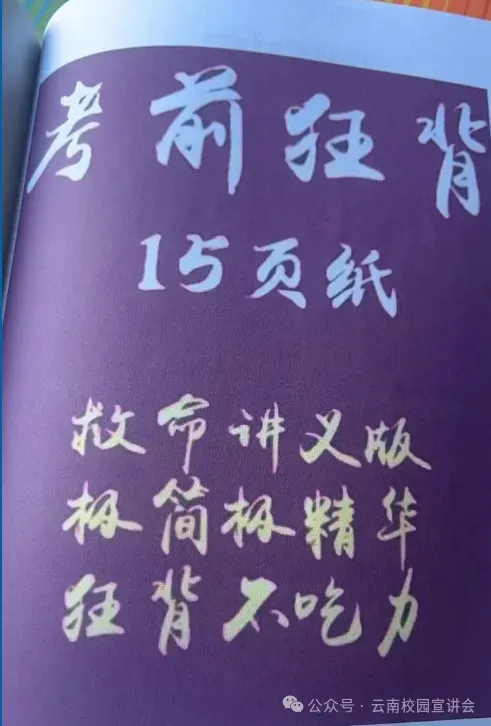 考前狂背
15页纸
救命讲义版
极简极精华
狂背不吃力
公众号·云南校园宣讲会